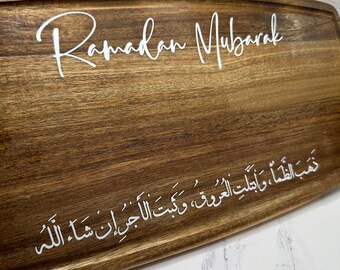 Ramadan Mubarak
ذَهَبَ الظَّمَأُ، وَابْتَلَّتِ العُرُوقُ، وَكَبَتَ الأَجْرُ إِن شَاءَ اللَّهُ